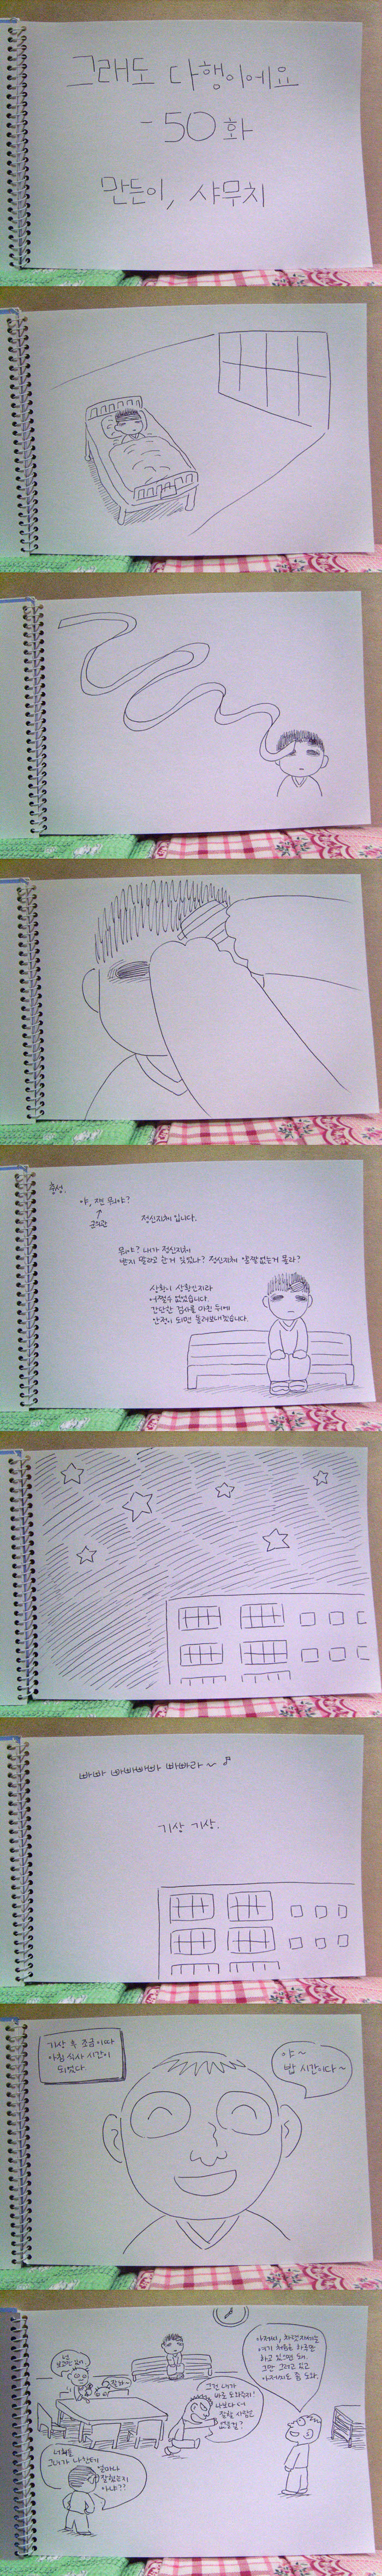 그래도 다행이에요
- 50화
만든이, 샤무치
충성.
야, 쟨 뭐야?
↑
군의관
정신지체 입니다.
뭐야? 내가 정신지체
받지 말라고 한 거 잊었나? 정신지체 약물 없는거 몰라?
상황이 상황인지라
어쩔수 없었습니다.
간단한 검사를 마친 뒤에
안정이 되면 돌려보내겠습니다.
빠빠 빠빠빠빠 빠빠라~ ♪
기상 기상.
기상 후 조금 이따
아침 식사 시간이
되었다.
야~
밥 시간이다~
아저씨,
여기 처음은
하고 있으면 돼.
그만 그러고 있고
아저씨도 좀 도와.
그건 니가
바로 도와줘야지!
나보다 더
잘할 사람은
없을걸?
너희들
그녀가 나한테
얼마나
잘했는지
아냐??